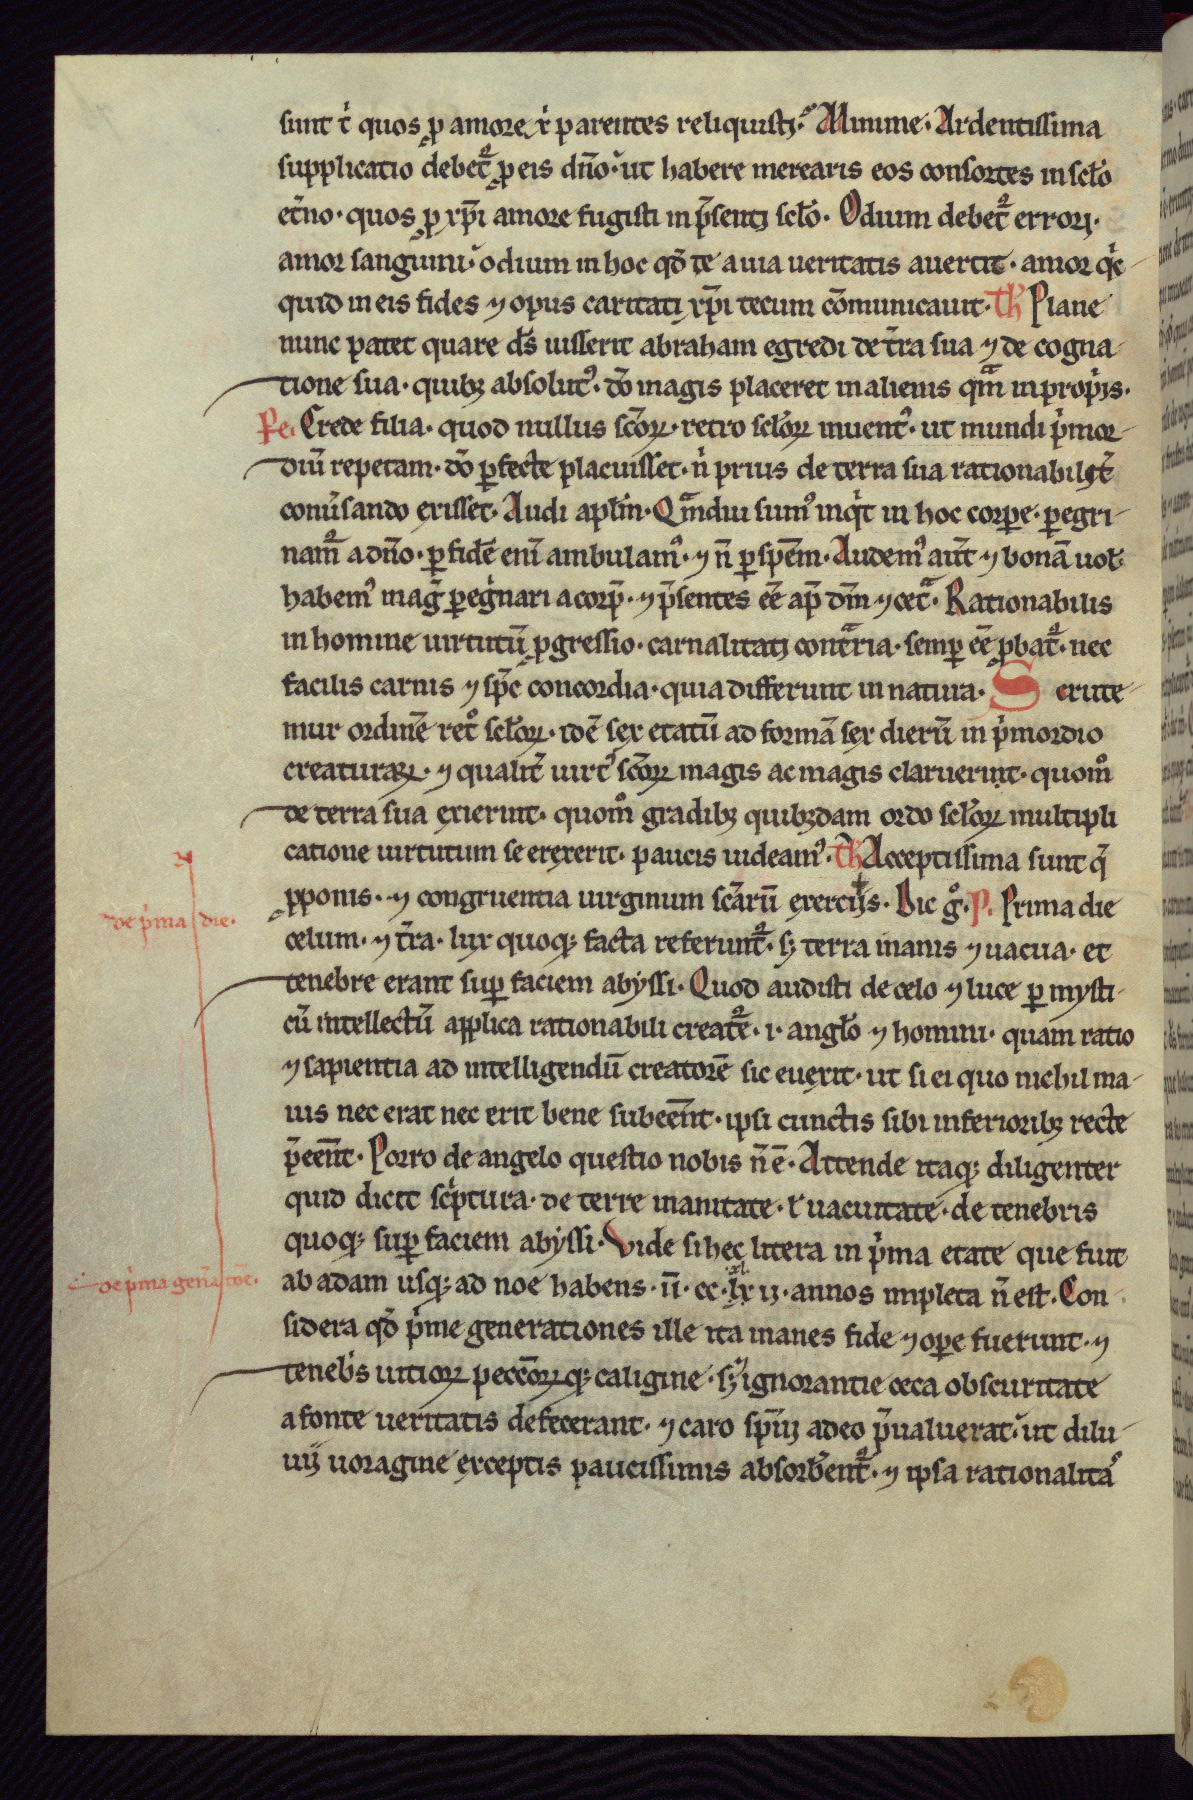 sunt τ̇ quos ꝓ amore xp̄i parentes reliquisti. Minime. Ardentissima
supplicatio debet᷑ ꝓ eis dn̄o. ut habere merearis eos consortes in sc̄lo
et̄no. quos ꝓ xp̄i amore fugisti in p̄senti sc̄lo. Odium debet᷑ errori.
amor sanguini. odium in hoc qd̄ te a uia ueritatis auertit. amor qⁱc
quid in eis fides ⁊ opus caritati xp̄i tecum cōmunicauit. Th̄ Plane
nunc patet quare ds̄ iusserit abraham egredi de t̄ra sua ⁊ de cogna
tione sua. quibꝫ absolut᷒. dō magis placeret in alienis qᵃm in propⁱis.
Pe. Crede filia. quod nullus sc̄oꝝ. retro sc̄loꝝ inuent᷒. ut mundi pⁱmor
diū repetam. dō ꝑfecte placuisset. nⁱ prius de terra sua rationabilit̄
conu̅sando exisset. Audi apl̄m. Qᵃmdiu sum᷒ inqⁱt in hoc corꝑe. ꝑegri
nam᷑ a dn̄o. ꝑ fidē enī ambulam᷒. ⁊ n̄ ꝑ spēm. Audem᷒ aut̄ ⁊ bonā uol̄
habem᷒ mag̅ ꝑegⁱnari a corp̄. ⁊ p̄sentes ēē ap̄ dm̄ ⁊ cetᵃ. Rationabilis
in homine uirtutū ꝓgressio. carnalitati contᵃria. semꝑ ēē ꝓbat᷑. nec
facilis carnis ⁊ sp̄c concordia. quia differunt in natura. Scrute
mur ordinē retᵒ sc̄loꝝ. idē sex etatū ad formā sex dierū in pⁱmordio
creaturaꝝ. ⁊ qualit̄ uirt᷒ sc̄oꝝ magis ac magis claruerint. quomᵒ
de terra sua exierint. quomᵒ gradibꝫ quibꝫdam ordo sc̄loꝝ multipli
catione uirtutum se erexerit. paucis uideam᷒. Th̄ Acceptissima sunt q̄
ꝓponis. ⁊ congruentia uirginum scārū exercijs. Dic gᵒ. P. Prima die
celum. ⁊ t̄ra. lux quoqꝫ facta referunt᷑. sꝫ terra inanis ⁊ uacua. et
de pⁱma die.
tenebre erant suꝑ faciem abyssi. Quod audisti de celo ⁊ luce ꝑ mysti
cū intellectū applica rationabili creat᷑ē. i. angl̄o ⁊ homini. quam ratio
⁊ sapientia ad intelligendū creatorē sic euexit. ut si ei quo nichil ma
ius nec erat nec erit bene subeēnt. ipsi cunctis sibi inferioribꝫ recte
p̄eēnt. Porro de angelo questio nobis n̄ ē. Attende itaqꝫ diligenter
quid dicit scⁱptura. de terre inanitate. τ uacuitate. de tenebris
quoqꝫ suꝑ faciem abyssi. Vide si hec litera in pⁱma etate que fuit
ab adam usqꝫ ad noe habens. ii̅. cc. xlij. annos impleta n̄ est. Con
de pⁱma gen̄atōē.
sidera qd̄ pⁱme generationes ille ita inanes fide ⁊ oꝑe fuerunt. ⁊
tenebⁱs uitioꝝ peccōꝝqꝫ caligine. sꝫ ⁊ ignorantie ceca obscuritate
a fonte ueritatis defecerant. ⁊ caro sp̄iui adeo p̄ualuerat. ut dilu
uij uoragine exceptis paucissimis absorb̄ent᷑. ⁊ ipsa rationalitaˢ